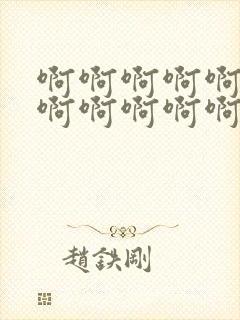 啊啊啊啊啊
啊啊啊啊啊
趙鉄剛